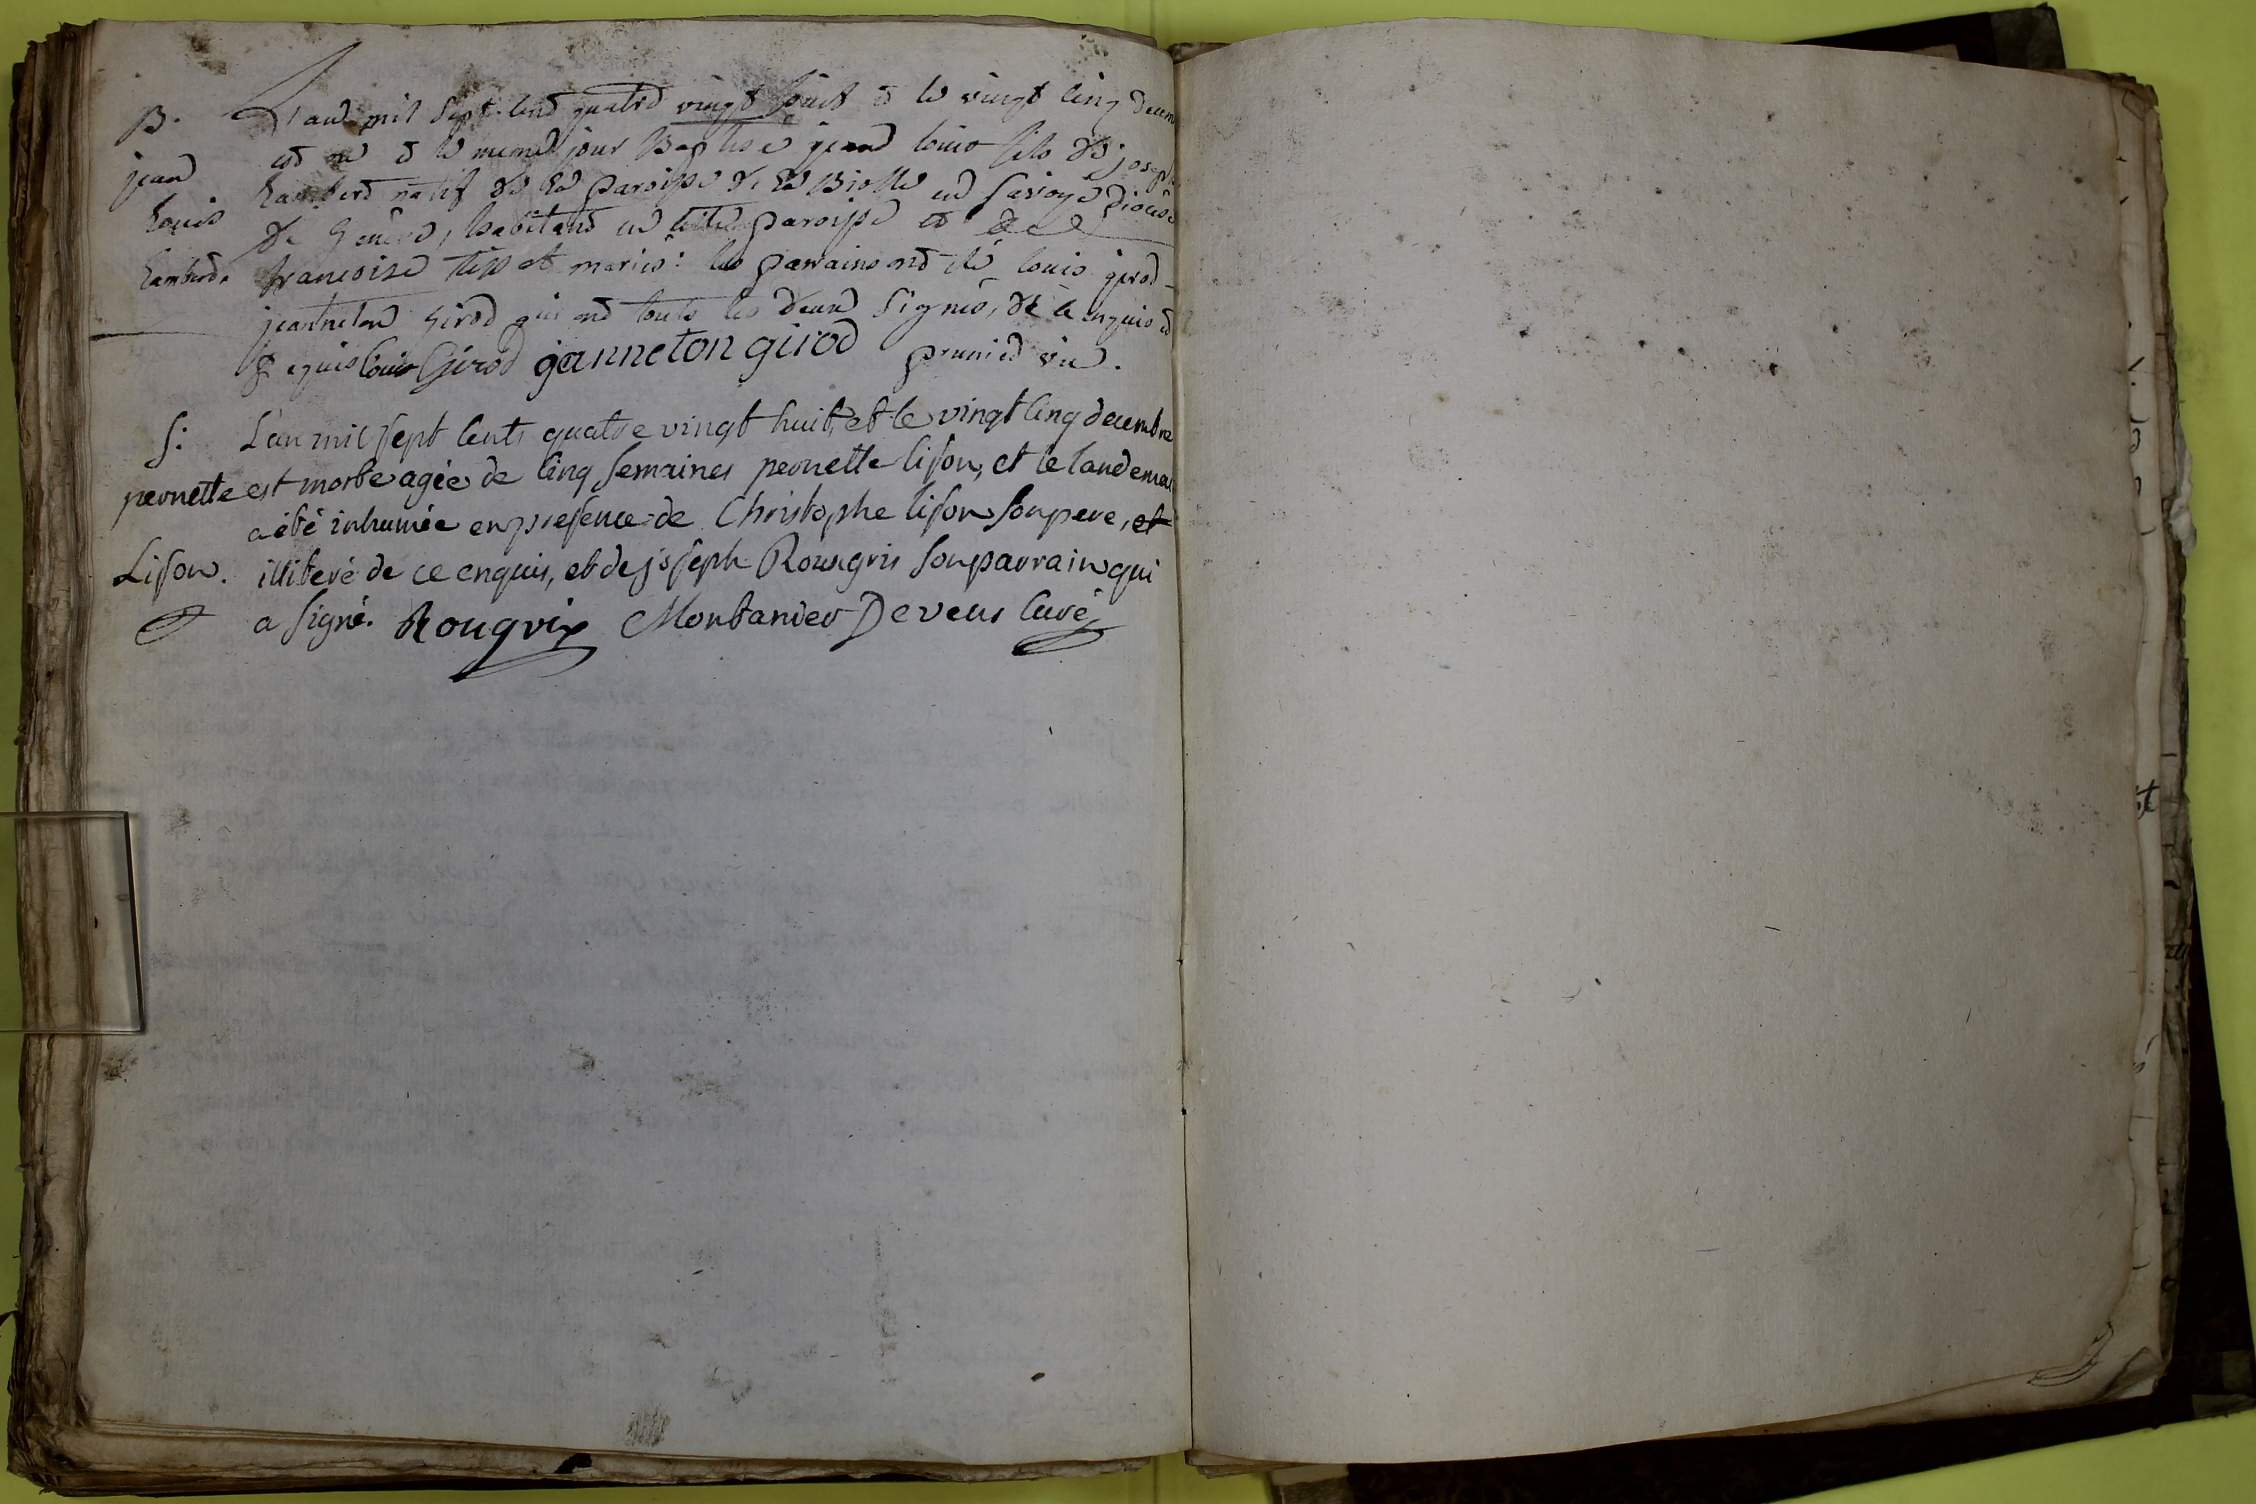 B. L'an mil sept cent quatre vingt huit et le vingt cinq decem
est né et le meme jour Baptisé jean louis fils de joseph
jean
Lambert natif de la paroisse de la Biolle en Savoye Diocèse
Louis
de Genève, habitant en cette paroisse et de
Lambert. francoise tissot mariés: les parrains ont été louis girod
jeanneton girod qui ont touts les deux Signés, de ce enquis et
requis louis Girod janneton girod prunier vic.
S: L'an mil sept cents quatre vingt huit, et le vingt cinq decembre
pernette est morte agée de cinq Semaines pernette lison, et le landemai
a été inhumée en presence de Christophe lison son pere, et
Lison. illiteré de ce enquis, et de joseph Rougris son parrain qui
a signé. Rougrix Montanier Deveus Curé